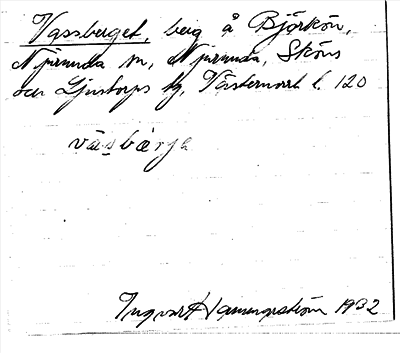 Vassberget, berg å Björkön,
Njurunda sn, Njurunda, Sköns
och Ljustorps tg, Västernorrl. l. 120
vàsbærjə
Ingvar Hammarström 1932